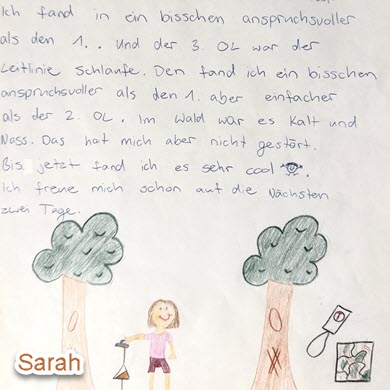 Ich fand in ein bisschen anspruchsvoller
als den 1. . Und der 3. OL war der
Leitlinie Schlaufe. Den fand ich ein bisschen
anspruchsvoller als den 1. aber einfacher
als der 2. OL. Im Wald war es Kalt und
Nass. Das hat mich aber nicht gestört.
Bis jetzt fand ich es sehr cool .
ich freue mich schon auf die Nächsten
zwei Tage.
Sarah